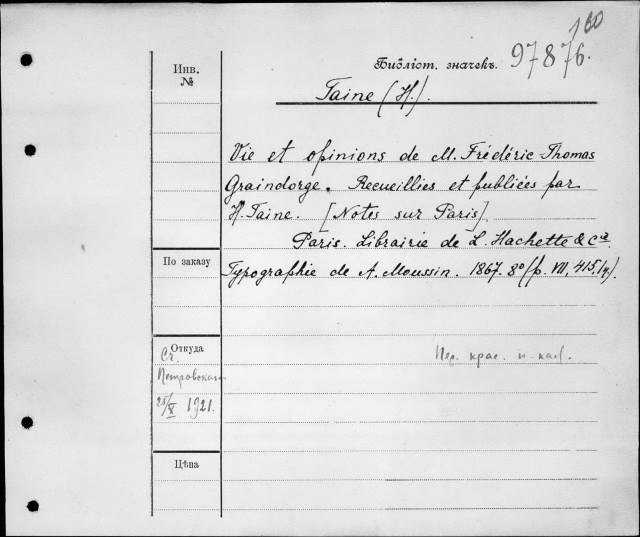 160
Инв. №
Библіот. значекъ. 97876.
Taine (H.).
Vie et opinions de M. Frédéric-Thomas
Graindorge. Recueillies et publiées par
H. Taine. [Notes sur Paris].
Paris. Librairie de L. Hachette & Cie.
По заказу
Typographie de A. Moussin. 1867. 8° (p. VII, 415,
Откуда
Пер. крас. и
Петровская
25/X 1921.
Цѣна